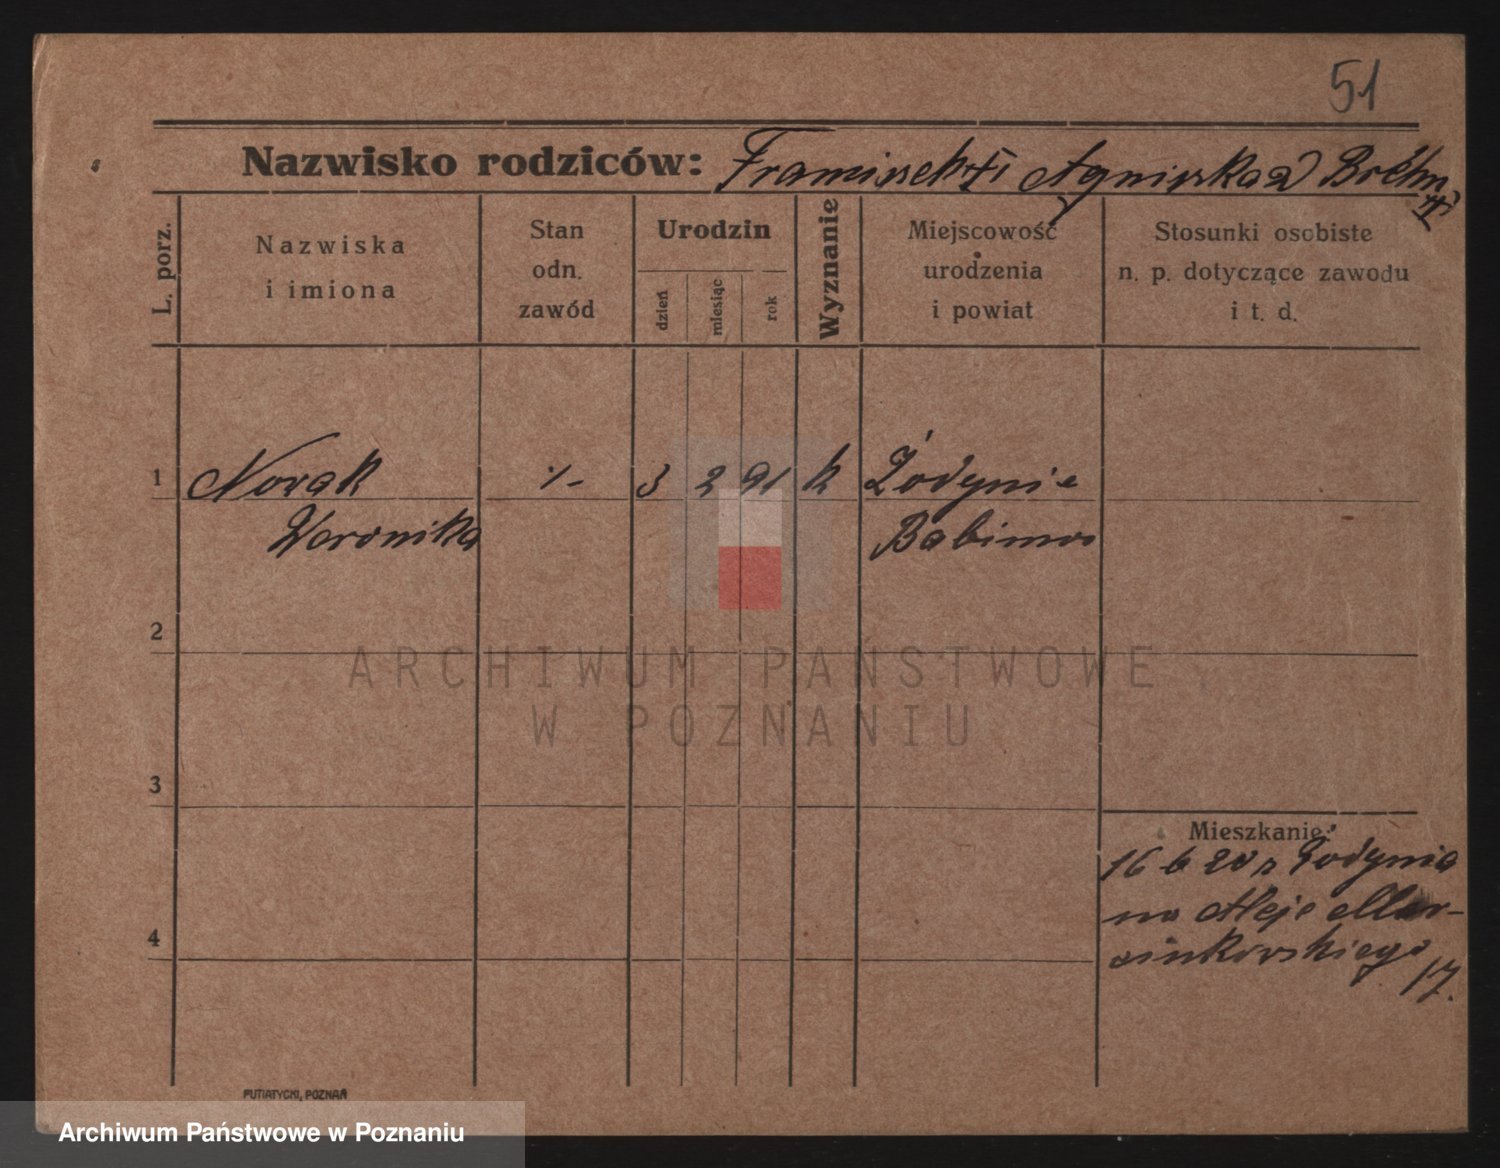 51
Nazwisko rodziców: Franciszek i Agnieszka
L. porz.
Nazwiska
i imiona
Stan
odn.
zawód
Urodzin
dzień
miesiąc
rok
Wyznanie
Miejscowość
urodzenia
i powiat
Stosunki osobiste
n. p. dotyczące zawodu
i t. d.
1 Nowak 3 2 91 k Żodynie
Weronika Babimos
2
3
4
Mieszkanie:
16 6 20 z Żodynia
na Aleje Mar-
cinkowskiego
17.
PUTIATYCKI, POZNAŃ
ARCHIWUM PAŃSTWOWE
W POZNANIU
Archiwum Państwowe w Poznaniu